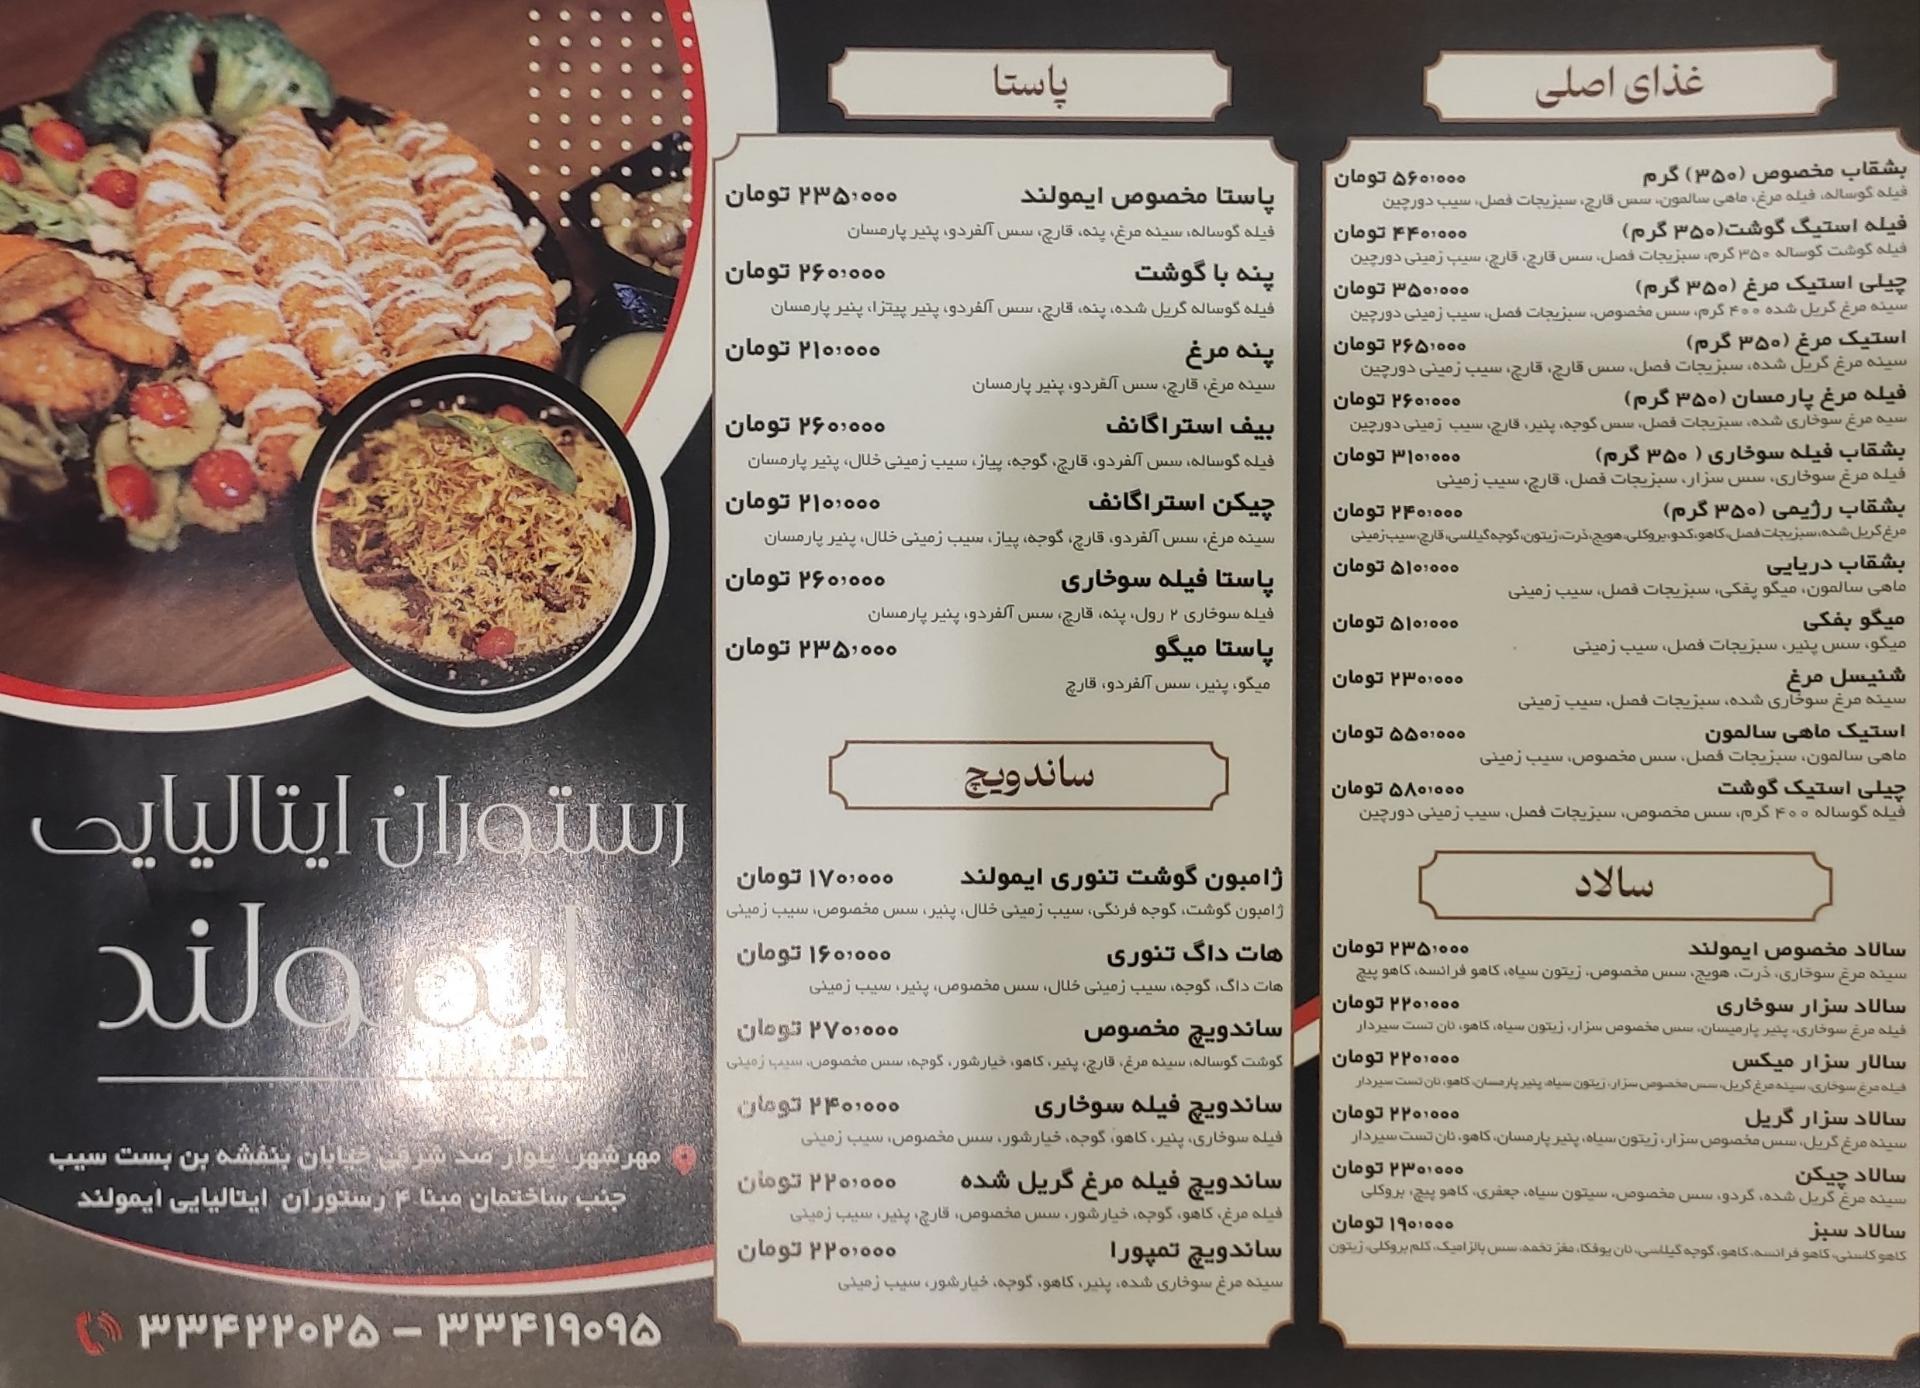 غذای اصلی
بشقاب مخصوص (۳۵۰) گرم ۵۶۰،۰۰۰ تومان
فیله گوساله، فیله مرغ، ماهی سالمون، سس قارچ، سبزیجات فصل، سیب دورچین
فیله استیگ گوشت(۳۵۰ گرم) ۴۴۰،۰۰۰ تومان
فیله گوشت گوساله ۳۵۰ گرم، سبزیجات فصل، سس قارچ، قارچ، سیب زمینی دورچین
چیلی استیک مرغ (۳۵۰ گرم) ۳۵۰،۰۰۰ تومان
سینه مرغ گریل شده ۴۰۰ گرم، سس مخصوص، سبزیجات فصل، سیب زمینی دورچین
استیک مرغ (۳۵۰ گرم) ۲۶۵،۰۰۰ تومان
سینه مرغ گریل شده، سبزیجات فصل، سس قارچ، قارچ، سیب زمینی دورچین
فیله مرغ پارمسان (۳۵۰ گرم) ۲۶۰،۰۰۰ تومان
سیه مرغ سوخاری شده، سبزیجات فصل، سس گوجه، پنیر، قارچ، سیب زمینی دورچین
بشقاب فیله سوخاری ( ۳۵۰ گرم) ۳۱۰،۰۰۰ تومان
فیله مرغ سوخاری، سس سزار، سبزیجات فصل، قارچ، سیب زمینی
بشقاب رژیمی (۳۵۰ گرم) ۲۴۰،۰۰۰ تومان
مرغ گریل شده، سبزیجات فصل، کاهو، کدو، بروکلی، هویج، ذرت، زیتون، گوجه گیلاسی، قارچ، سیب زمینی
بشقاب دریایی ۵۱۰،۰۰۰ تومان
ماهی سالمون، میگو پفکی، سبزیجات فصل، سیب زمینی
میگو بفکی ۵۱۰،۰۰۰ تومان
میگو، سس پنیر، سبزیجات فصل، سیب زمینی
شنیسل مرغ ۲۳۰،۰۰۰ تومان
سینه مرغ سوخاری شده، سبزیجات فصل، سیب زمینی
استیک ماهی سالمون ۵۵۰،۰۰۰ تومان
ماهی سالمون، سبزیجات فصل، سس مخصوص، سیب زمینی
چیلی استیک گوشت ۵۸۰،۰۰۰ تومان
فیله گوساله ۴۰۰ گرم، سس مخصوص، سبزیجات فصل، سیب زمینی دورچین
سالاد
سالاد مخصوص ایمولند ۲۳۵،۰۰۰ تومان
سینه مرغ سوخاری، ذرت، هویج، سس مخصوص، زیتون سیاه، کاهو فرانسه، کاهو پیچ
سالاد سزار سوخاری ۲۲۰،۰۰۰ تومان
فیله مرغ سوخاری، پنیر پارمیسان، سس مخصوص سزار، زیتون سیاه، کاهو، نان تست سیردار
سالار سزار میکس ۲۲۰،۰۰۰ تومان
فیله مرغ سوخاری، سینه مرغ گریل، سس مخصوص سزار، زیتون سیاه، پنیر پارمسان، کاهو، نان تست سیردار
سالاد سزار گریل ۲۲۰،۰۰۰ تومان
سینه مرغ گریل، سس مخصوص سزار، زیتون سیاه، پنیر پارمسان، کاهو، نان تست سیردار
سالاد چیکن ۲۳۰،۰۰۰ تومان
سینه مرغ گریل شده، گردو، سس مخصوص، سیتون سیاه، جعفری، کاهو پیچ، بروکلی
سالاد سبز ۱۹۰،۰۰۰ تومان
کاهو کاسنی، کاهو فرانسه، کاهو، گوجه گیلاسی، نان یوفکا، مغز تخمه، سس بالزامیک، کلم بروکلی، زیتون
پاستا
پاستا مخصوص ایمولند ۲۳۵،۰۰۰ تومان
فیله گوساله، سینه مرغ، پنه، قارچ، سس آلفردو، پنیر پارمسان
پنه با گوشت ۲۶۰،۰۰۰ تومان
فیله گوساله گریل شده، پنه، قارچ، سس آلفردو، پنیر پیتزا، پنیر پارمسان
پنه مرغ ۲۱۰،۰۰۰ تومان
سینه مرغ، قارچ، سس آلفردو، پنیر پارمسان
بیف استراگانف ۲۶۰،۰۰۰ تومان
فیله گوساله، سس آلفردو، قارچ، گوجه، پیاز، سیب زمینی خلال، پنیر پارمسان
چیکن استراگانف ۲۱۰،۰۰۰ تومان
سینه مرغ، سس آلفردو، قارچ، گوجه، پیاز، سیب زمینی خلال، پنیر پارمسان
پاستا فیله سوخاری ۲۶۰،۰۰۰ تومان
فیله سوخاری ۲ رول، پنه، قارچ، سس آلفردو، پنیر پارمسان
پاستا میگو ۲۳۵،۰۰۰ تومان
میگو، پنیر، سس آلفردو، قارچ
ساندویچ
ژامبون گوشت تنوری ایمولند ۱۷۰،۰۰۰ تومان
ژامبون گوشت، گوجه فرنگی، سیب زمینی خلال، پنیر، سس مخصوص، سیب زمینی
هات داگ تنوری ۱۶۰،۰۰۰ تومان
هات داگ، گوجه، سیب زمینی خلال، سس مخصوص، پنیر، سیب زمینی
ساندویچ مخصوص ۲۷۰،۰۰۰ تومان
گوشت گوساله، سینه مرغ، قارچ، پنیر، کاهو، خیارشور، گوجه، سس مخصوص، سیب زمینی
ساندویچ فیله سوخاری ۲۴۰،۰۰۰ تومان
فیله سوخاری، پنیر، کاهو، گوجه، خیارشور، سس مخصوص، سیب زمینی
ساندویچ فیله مرغ گریل شده ۲۲۰،۰۰۰ تومان
فیله مرغ، کاهو، گوجه، خیارشور، سس مخصوص، قارچ، پنیر، سیب زمینی
ساندویچ تمپورا ۲۲۰،۰۰۰ تومان
سینه مرغ سوخاری شده، پنیر، کاهو، گوجه، خیارشور، سیب زمینی
رستوران ایتالیایی
ایمولند
مهرشهر، بلوار صد شرقی خیابان بنفشه بن بست سیب
جنب ساختمان مبنا ۴ رستوران ایتالیایی ایمولند
۳۳۴۲۲۰۲۵ – ۳۳۴۱۹۰۹۵